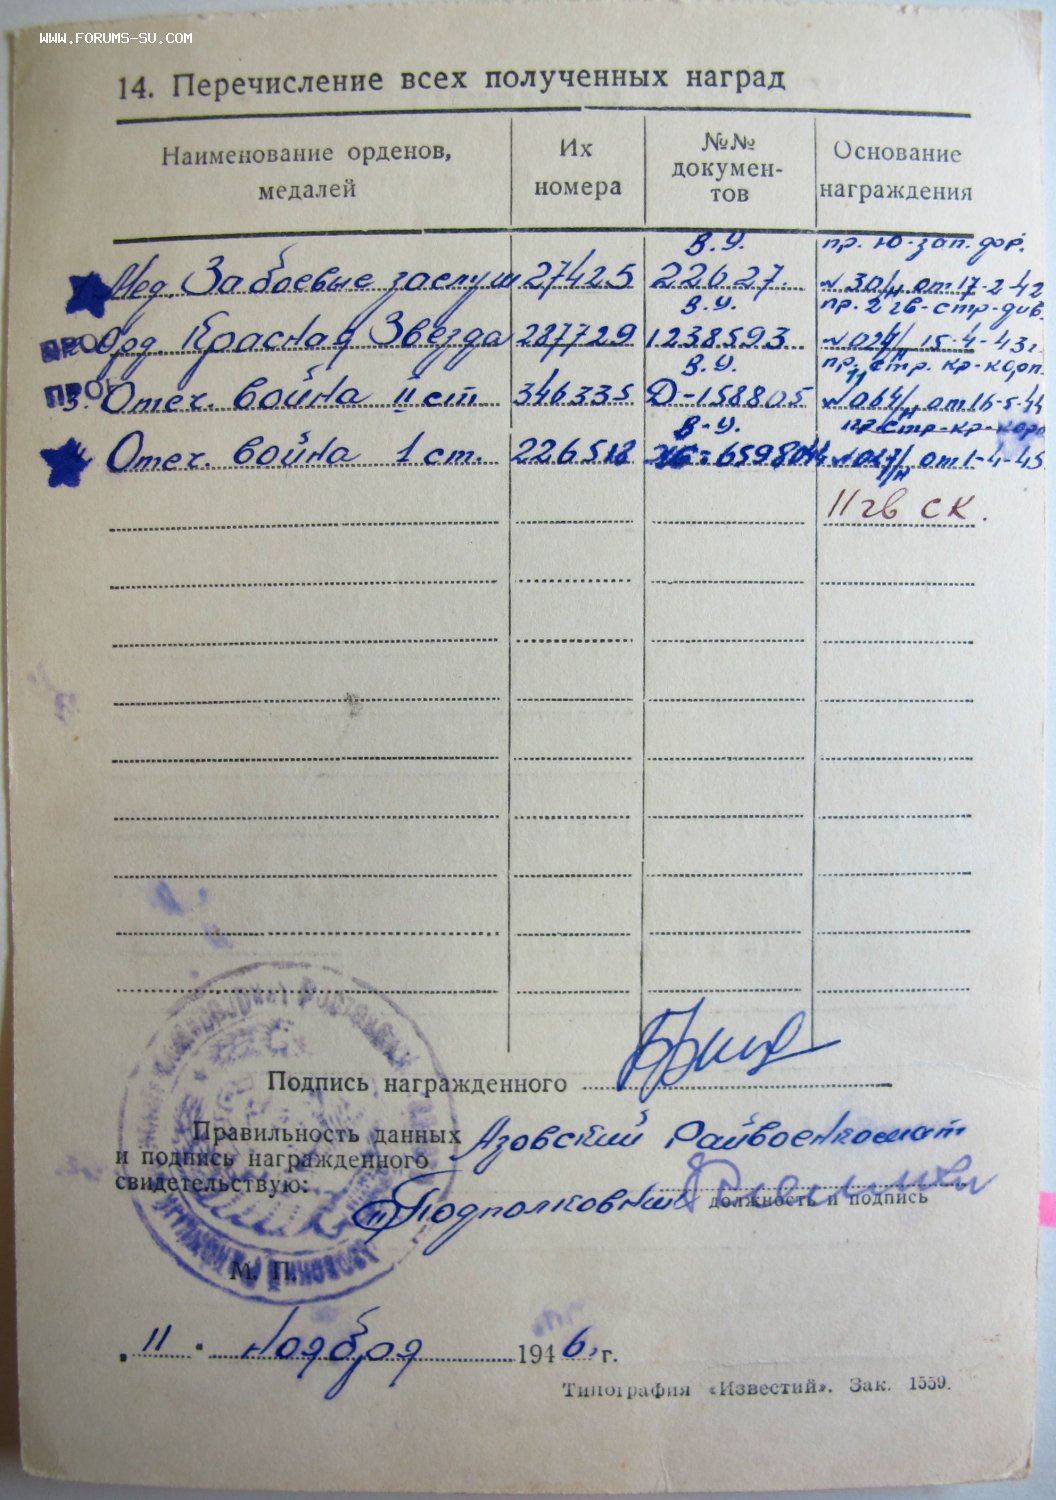 www.forums-su.com
14. Перечисление всех полученных наград
Наименование орденов, медалей
Их номера
№№ докумен-тов
Основание награждения
Мед. За боевые заслуги 27425 В.У. 22627. пр. Ю-зап. фр. №304/н от 17-2-42
ПРО Орд. Красная Звезда 287729 В.У. 1238593 пр. 2 гв-стр-див. №024/н 15-4-43г.
ПРО 3. Отеч. война II ст 346335 В.У. Д-158805 пр. 11 стр. кр-корп. №064/н от 16-5-44
Отеч. война 1 ст. 226518 В-У. 659804 пр стр-кр-кор №027/н от 1-4-45
11 гв ск.
Подпись награжденного
Правильность данных Азовский Райвоенкомат
и подпись награжденного
свидетельствую: Подполковник
должность и подпись
М. П.
„11" ноября 1946 г.
Типография «Известий». Зак. 1559.